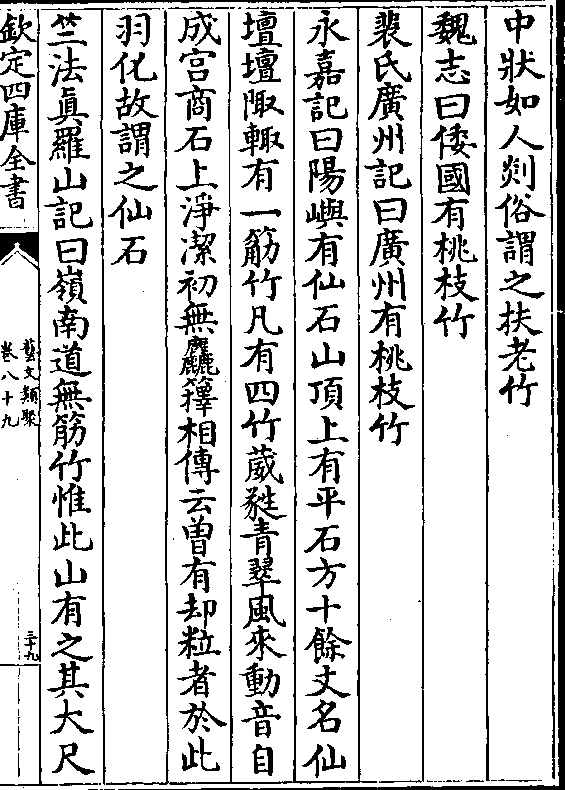 中狀如人剡俗謂之扶老竹
魏志曰倭國有桃枝竹
裴氏廣州記曰廣州有桃枝竹
永嘉記曰陽嶼有仙石山頂上有平石方十餘丈名仙
壇壇陬輙有一筋竹凡有四竹葳蕤青翠風來動音自
成宫商石上淨潔初無麤籜相傳云曽有却粒者於此
羽化故謂之仙石
竺法眞羅山記曰嶺南道無筋竹惟此山有之其大尺
欽定四庫全書
藝文類聚
卷八十九
二十九